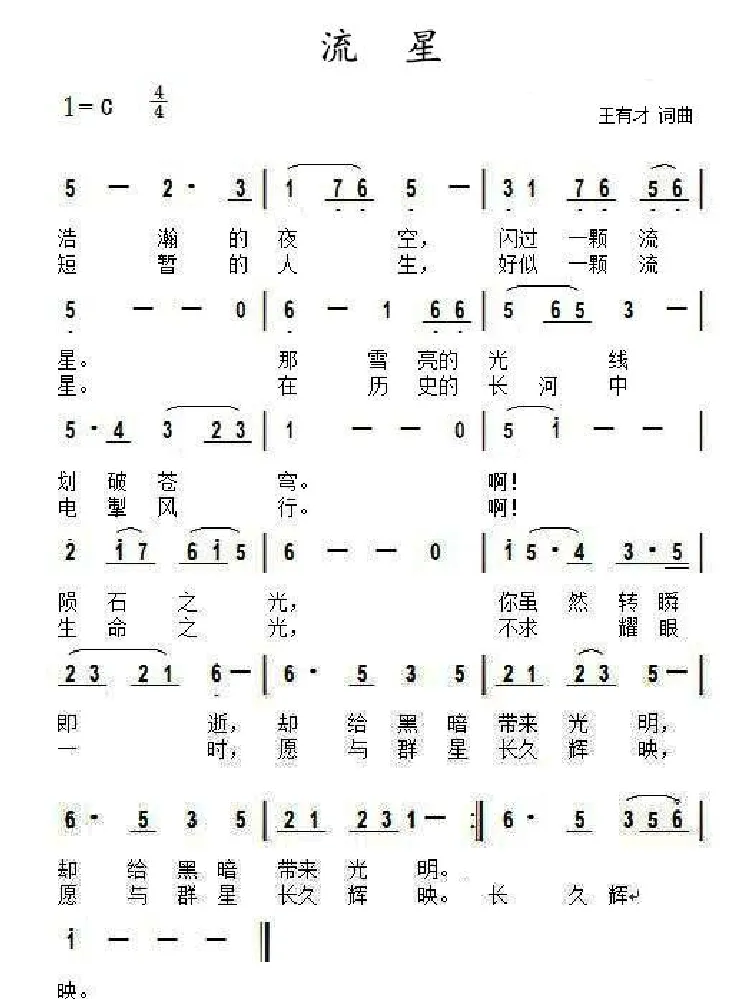 流 星
1=C 4/4
王有才 词曲
5 — 2· 3 | 1 7 6 5 — | 3 1 7 6 5 6 |
浩 瀚 的 夜 空， 闪过 一颗 流
短 暂 的 人 生， 好似 一颗 流
5 — — 0 | 6 — 1 6 6 | 5 6 5 3 — |
星。 那 雪 亮的 光 线
星。 在 历 史的 长 河 中
5· 4 3 2 3 | 1 — — 0 | 5 i — — |
划 破 苍 穹。 啊！
电 掣 风 行。 啊！
2 i 7 6 i 5 | 6 — — 0 | i 5· 4 3· 5 |
陨 石 之 光， 你虽 然 转 瞬
生 命 之 光， 不求 耀 眼
2 3 2 1 6 — | 6· 5 3 5 | 2 1 2 3 5 — |
即 逝， 却 给 黑 暗 带来 光 明，
一 时， 愿 与 群 星 长久 辉 映，
6· 5 3 5 | 2 1 2 3 1 — :‖ 6· 5 3 5 6 |
却 给 黑 暗 带来 光 明。
愿 与 群 星 长久 辉 映。 长 久 辉↵
i — — — ‖
映。